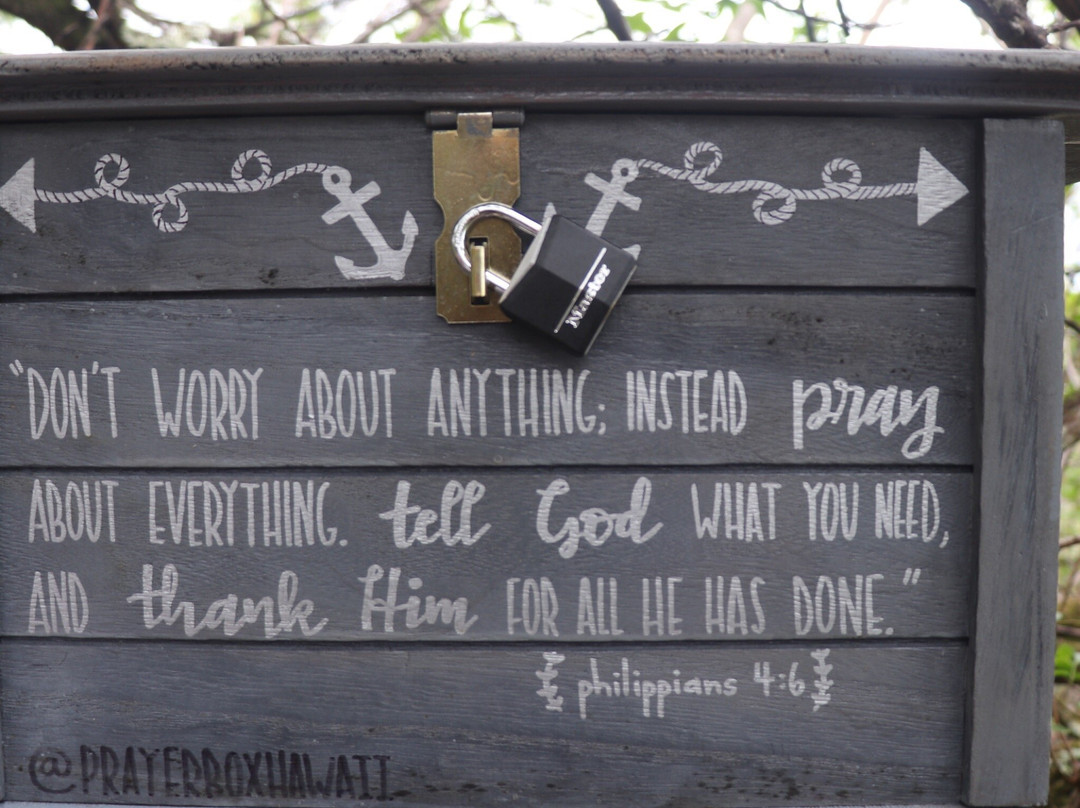 Master
"DON'T WORRY ABOUT ANYTHING; INSTEAD pray
ABOUT EVERYTHING. tell God WHAT YOU NEED,
AND thank Him FOR ALL HE HAS DONE."
philippians 4:6
@PRAYERBOXHAWAII